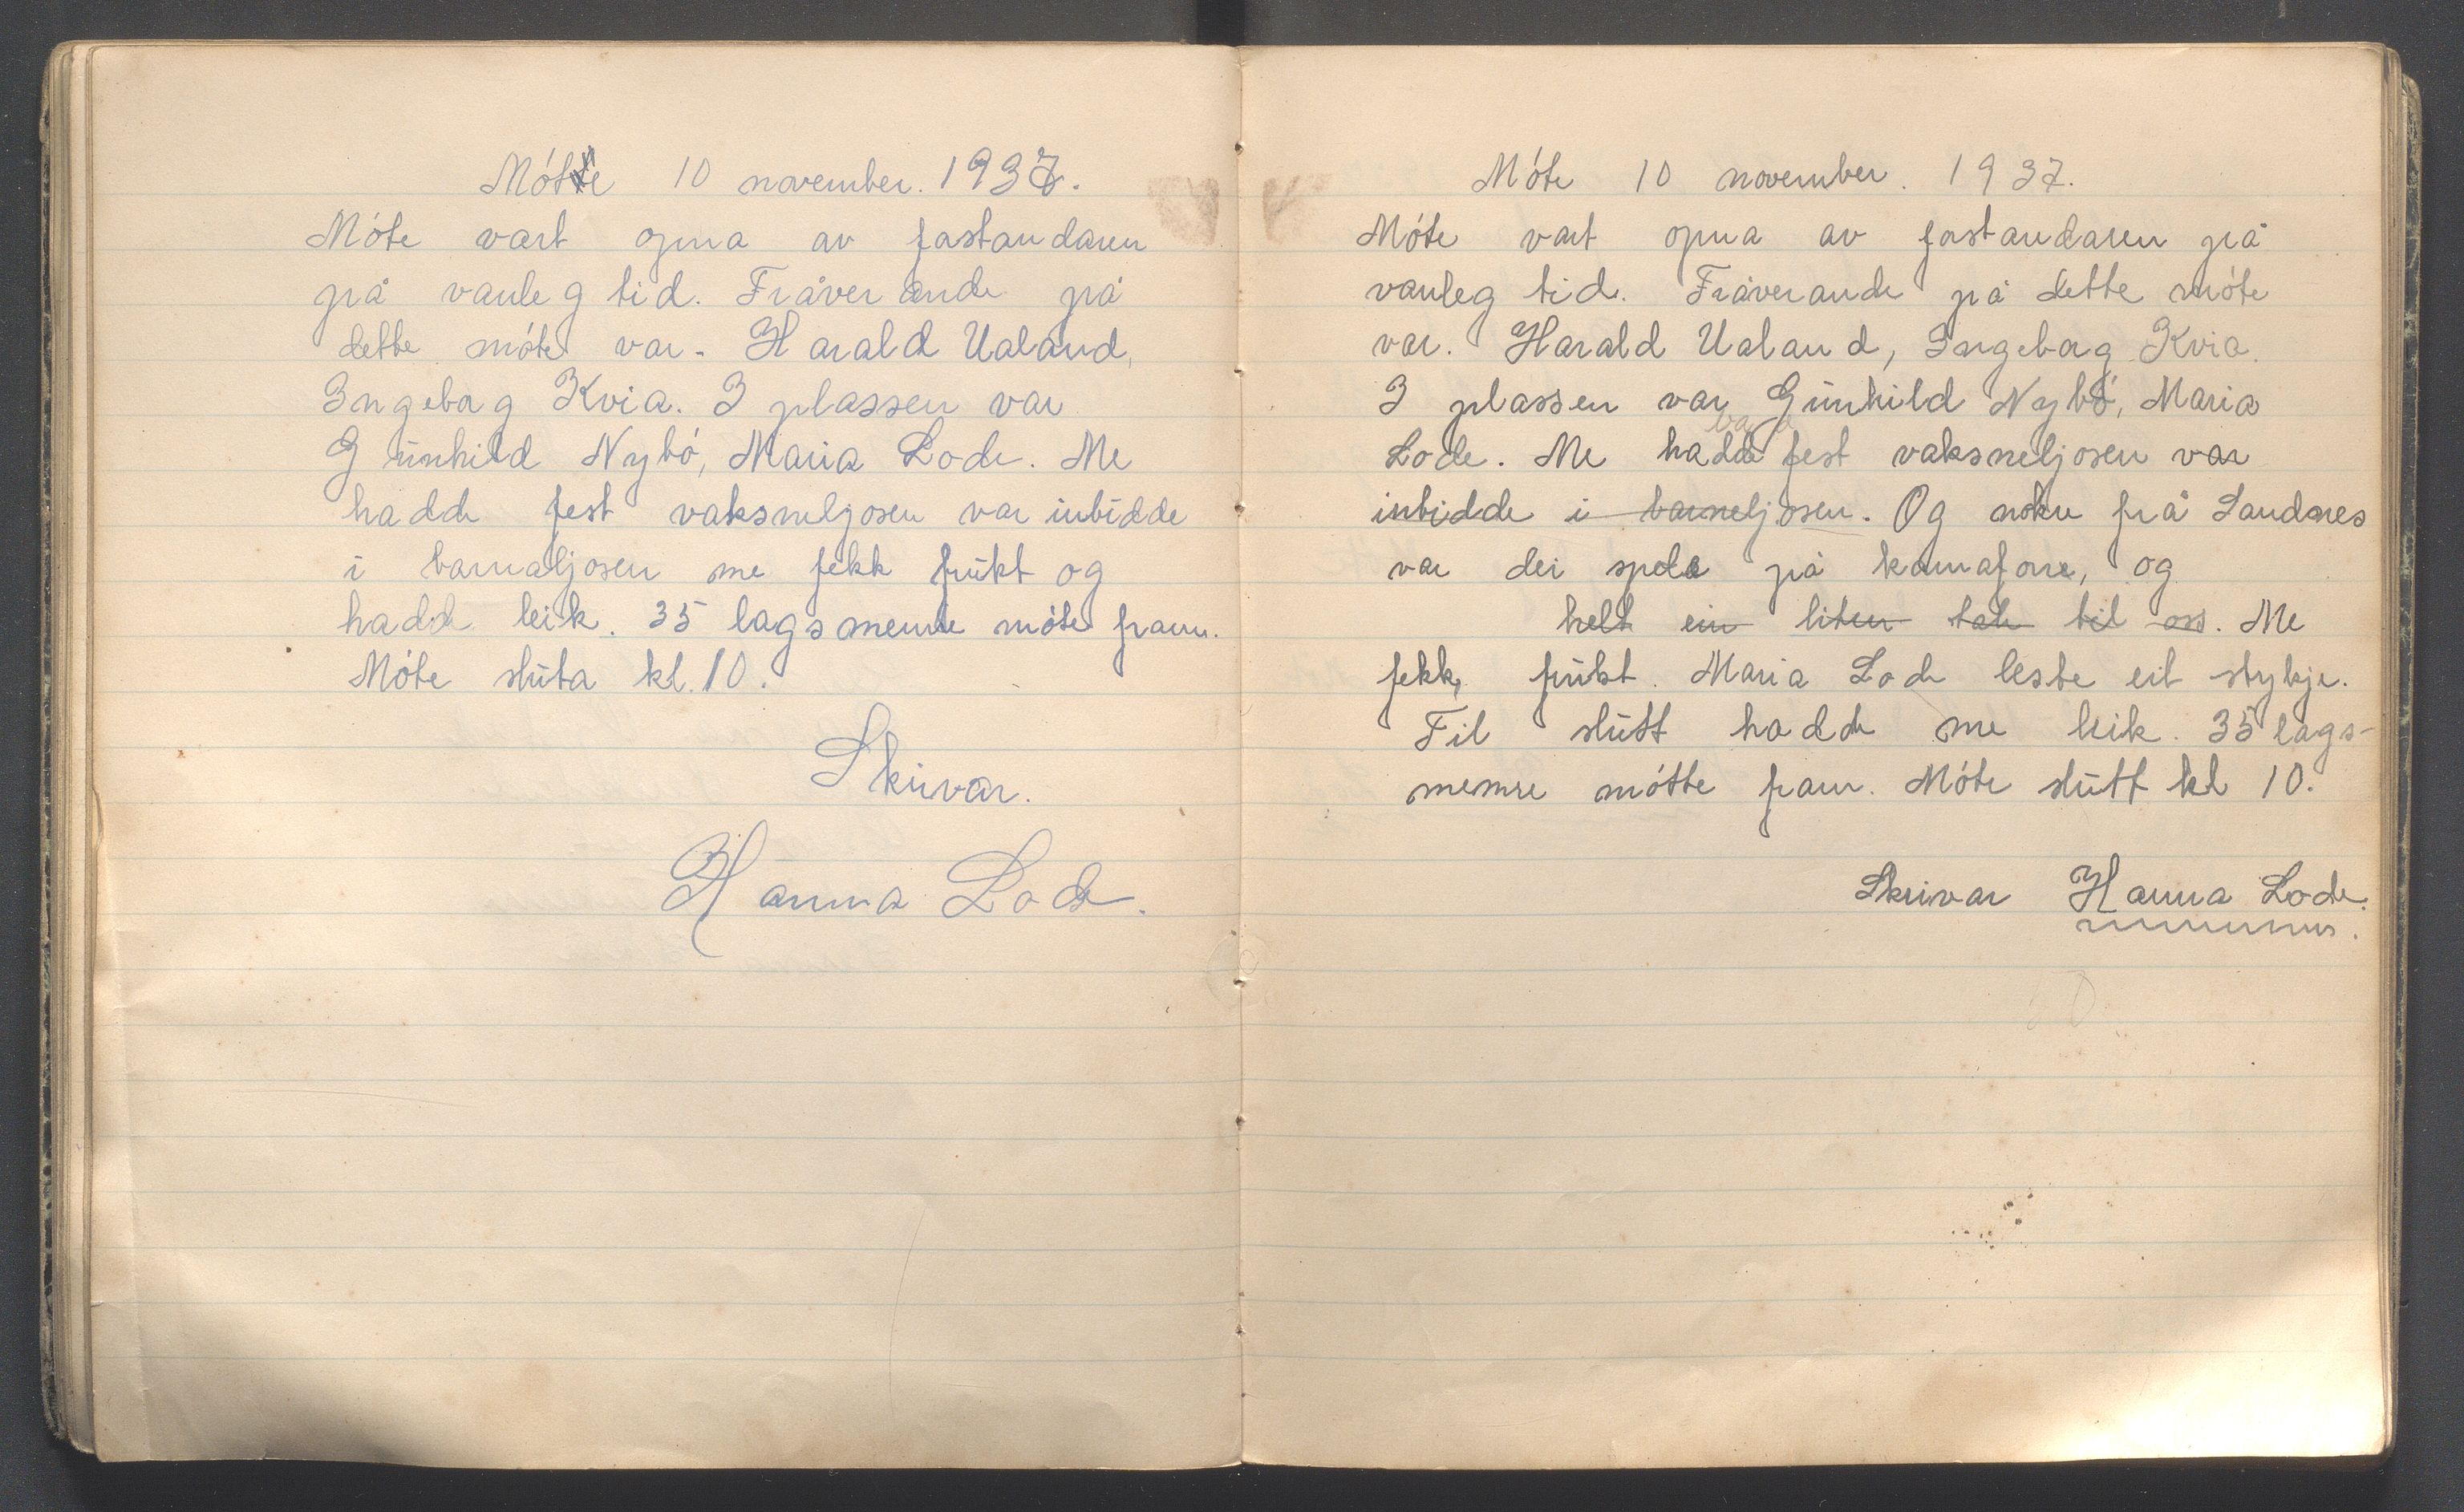 Móte 10 november. 1937.
Móte vart opna av fostandaren
på vanleg tid. Fråverande på
dette móte var. Harald Ualand,
Ingeborg Kvia. I plassen var
Gŭnhild Nybó, Maria Lode. Me
hadde fest vaksneljosen var inbidde
i barnaljosen me fekk frŭkt og
hadde leik. 35 lagsmemre móte fram.
Móte slŭta kl. 10.
Skrivar.
Hanna Lode.
Móte 10 november. 1937.
Móte vart opna av fostandaren på
vanleg tid. Fråverande på dette móte
var. Harald Ualand, Ingeborg Kvia.
I plassen var Gŭnhild Nybó, Maria
Lode. Me hadde fest vaksneljosen var
inbidde i barneljosen. Og noken frå Sandnes
var dei spela på komafone, og
helt ein liten tale til oss. Me
fekk, frŭkt. Maria Lode leste eit stykje.
Til slŭtt hadde me leik. 35 lags-
memre mótte fram. Móte slŭtt kl 10.
Skrivar Hanna Lode.